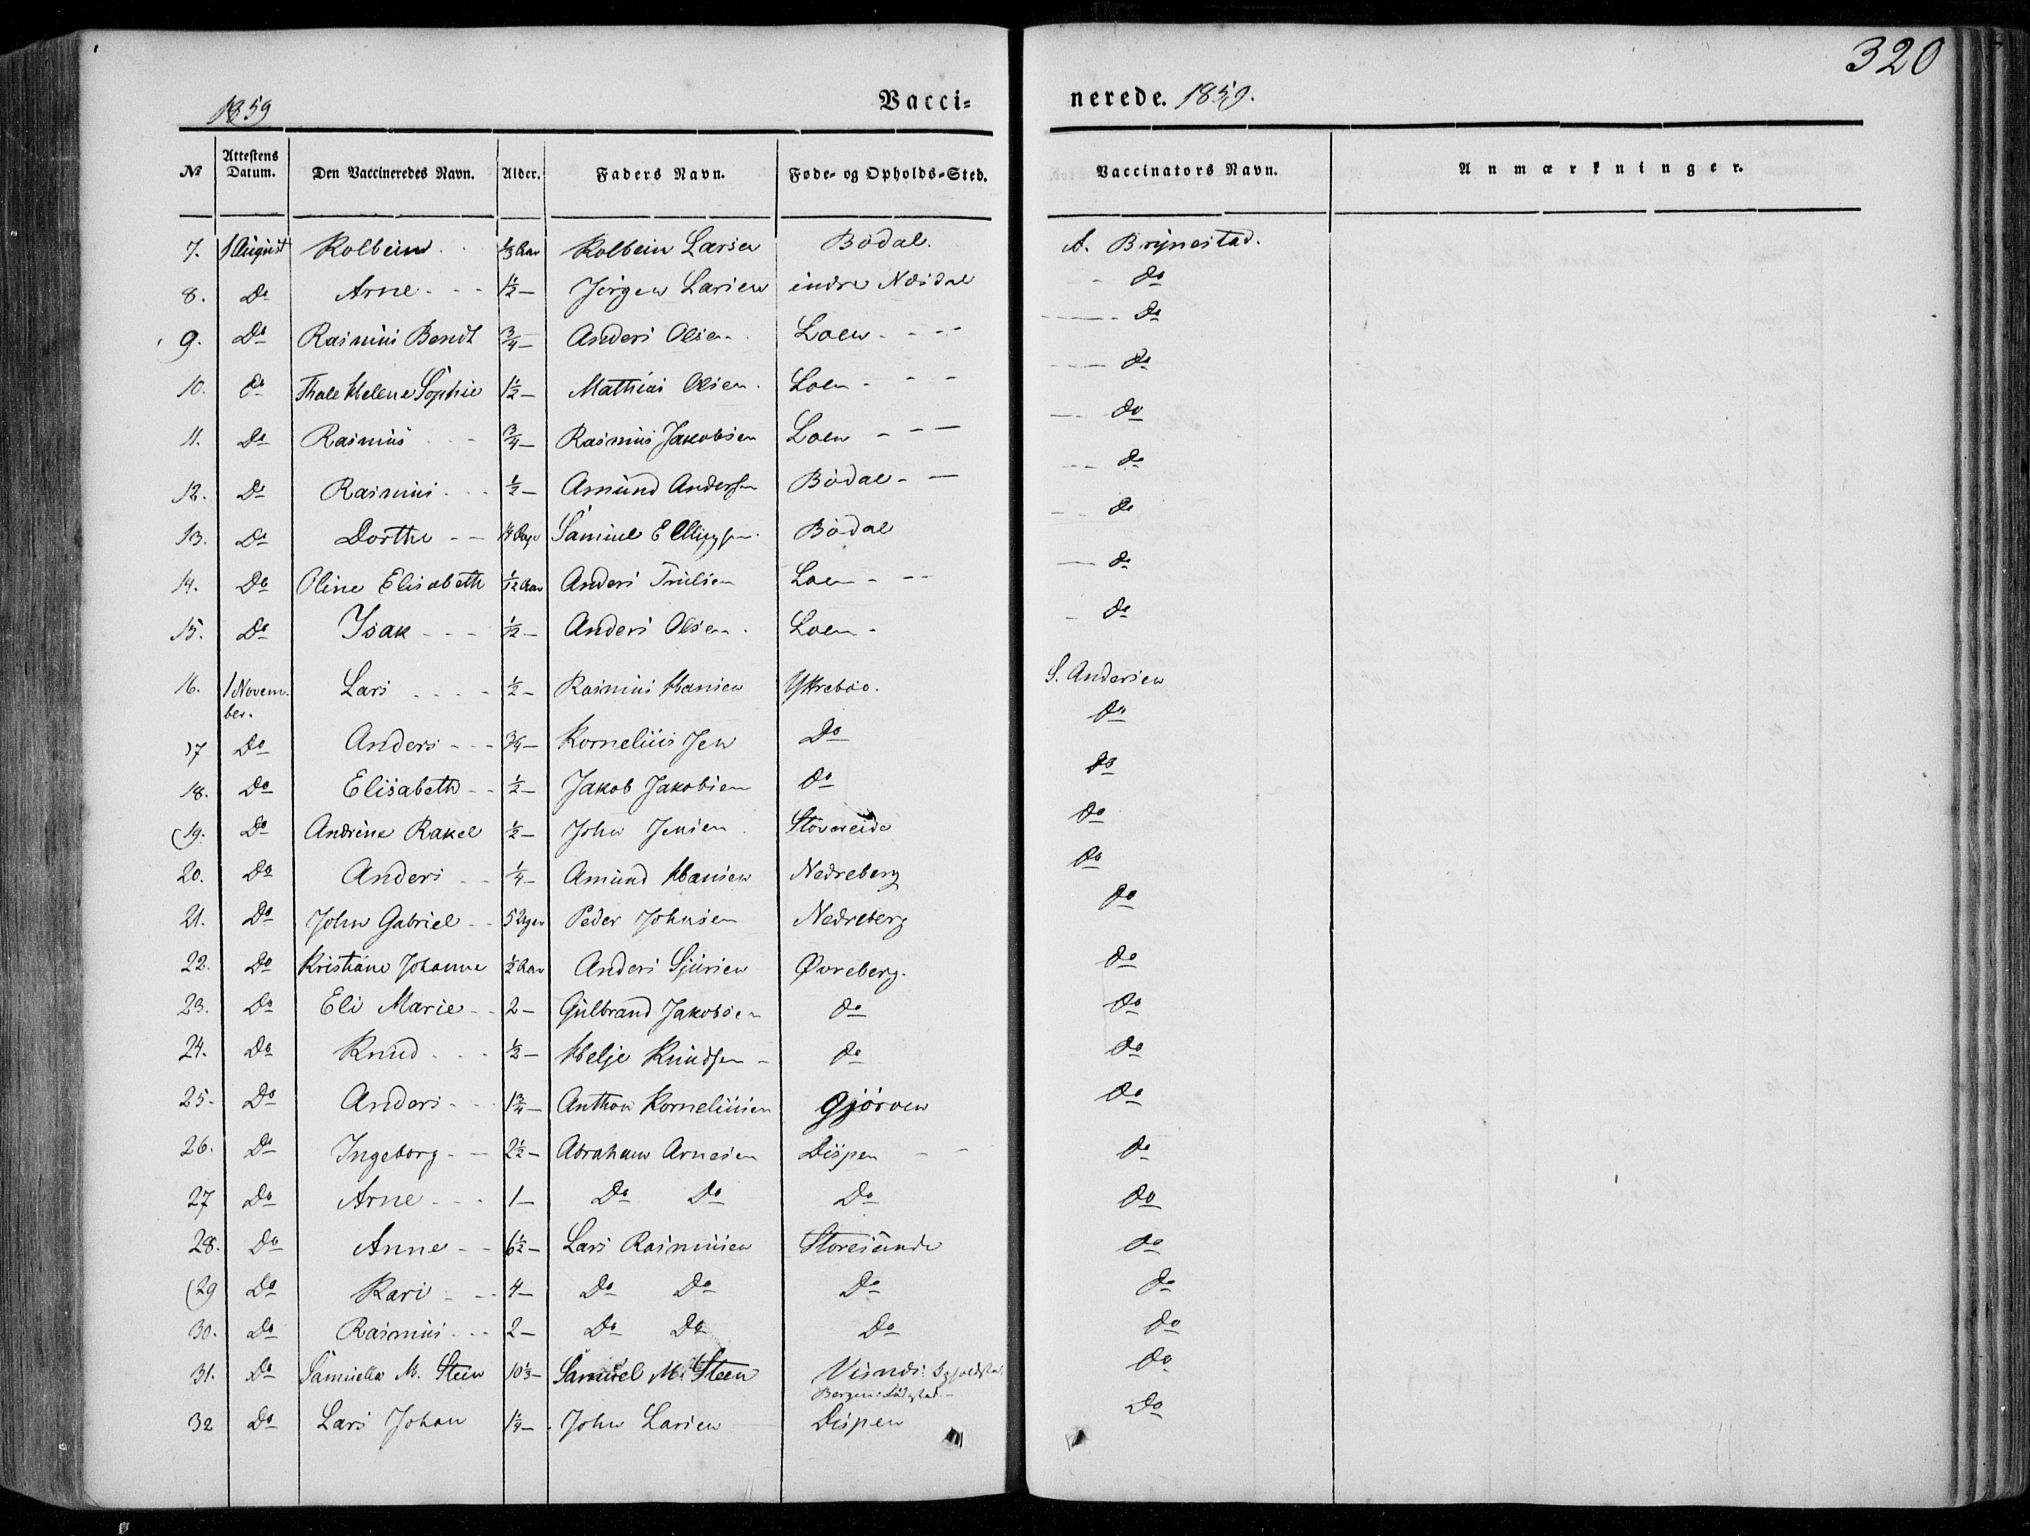 320
1859 Vacci= nerede. 1859.
№ Attestens Datum. Den Vaccineredes Navn. Alder. Faders Navn. Føde- og Opholds-Sted. Vaccinators Navn. Anmærkninger.
7. 1 August Kolbein ⅓ Aar Kolbein Larsen Bødal. A. Brynestad.
8. Do Arne 1½ Jørgen Larsen indre Næsdal do
9. Do Rasmus Bendt ¾ Anders Olsen Loen do
10. do Thale Helene Sophie 1½ Mathias Olsen Loen do
11. Do Rasmus ¾ Rasmus Jakobsen Loen do
12. Do Rasmus ½ Amund Andersen Bødal do
13. Do Dorthe 14 Dage Samuel Ellingsen Bødal do
14. Do Oline Elisabeth 1/12 Aar Anders Trulsen Loen do
15. Do Isak 1/12 Anders Olsen Loen do
16. 1 November. Lars ½ Rasmus Hansen Yttrebøe. S. Andersen
17 Do Anders ¾ Kornelius Jen Do do
18. Do Elisabeth ½ Jakob Jakobsen do do
19. Do Andrine Rakel ½ John Jensen Støvereide do
20. Do Anders ¼ Amund Hansen Nedreberg do
21. Do John Gabriel 5 Uger Peder Johnsen Nedreberg do
22. Do Kristiane Johanne ½ Aar Anders Sjursen Øvreberg. do
23. Do Eli Marie 2 Gulbrand Jakobsen do do
24. Do Knud ½ Helje Knudsen do do
25. Do Anders 1¾ Anthon Korneliusen Gjørven do
26. Do Ingeborg 2½ Abraham Arnesen Dispen do
27 Do Arne 1 Do Do Do do
28. Do Anne 6½ Lars Rasmusen Storesunde do
29 Do Kari 4 Do Do Do do
30. Do Rasmus 2 Do Do Do do
31. Do Samuella M. Steen 10⅓ Samuel M. Steen Visnæs: Opholdsted Bergen: Fødested do
32 Do Lars Johan 1¼ John Larsen Dispen Do